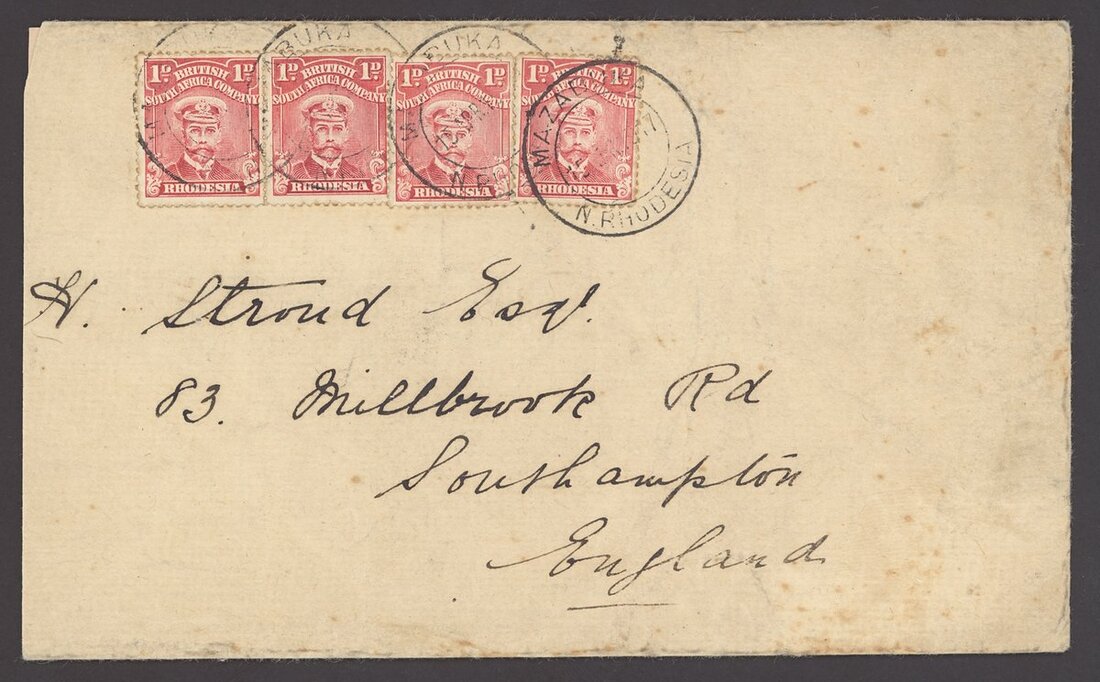 1D BRITISH 1D
SOUTH AFRICA COMPANY
RHODESIA
1D BRITISH 1D
SOUTH AFRICA COMPANY
RHODESIA
1D BRITISH 1D
SOUTH AFRICA COMPANY
RHODESIA
1D BRITISH 1D
SOUTH AFRICA COMPANY
RHODESIA
BUKA
BUKA
N.RHODESIA
H. Stroud Esqr.
83. Millbrook Rd
Southampton
England